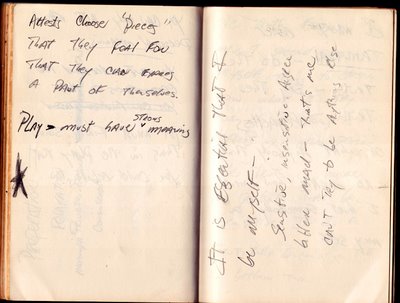 Artists Choose "Pieces"
That They Feel For
That They Can
A Part of Themselves.
Play > must have strong meaning
It is Essential That I
be myself —
Sensitive, insensitive,
mad — That's me
Can't Try to be Anything Else